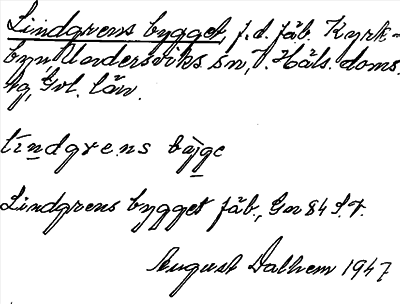 Lindgrens bygget, f.d. fäb. Kyrk-
byn Undersviks sn, V. Häls. doms.
hg, Gvl. län.
lindgrens bỳge
Lindgrens bygget fäb., Gen 84 S.4.
August Dalhem 1947